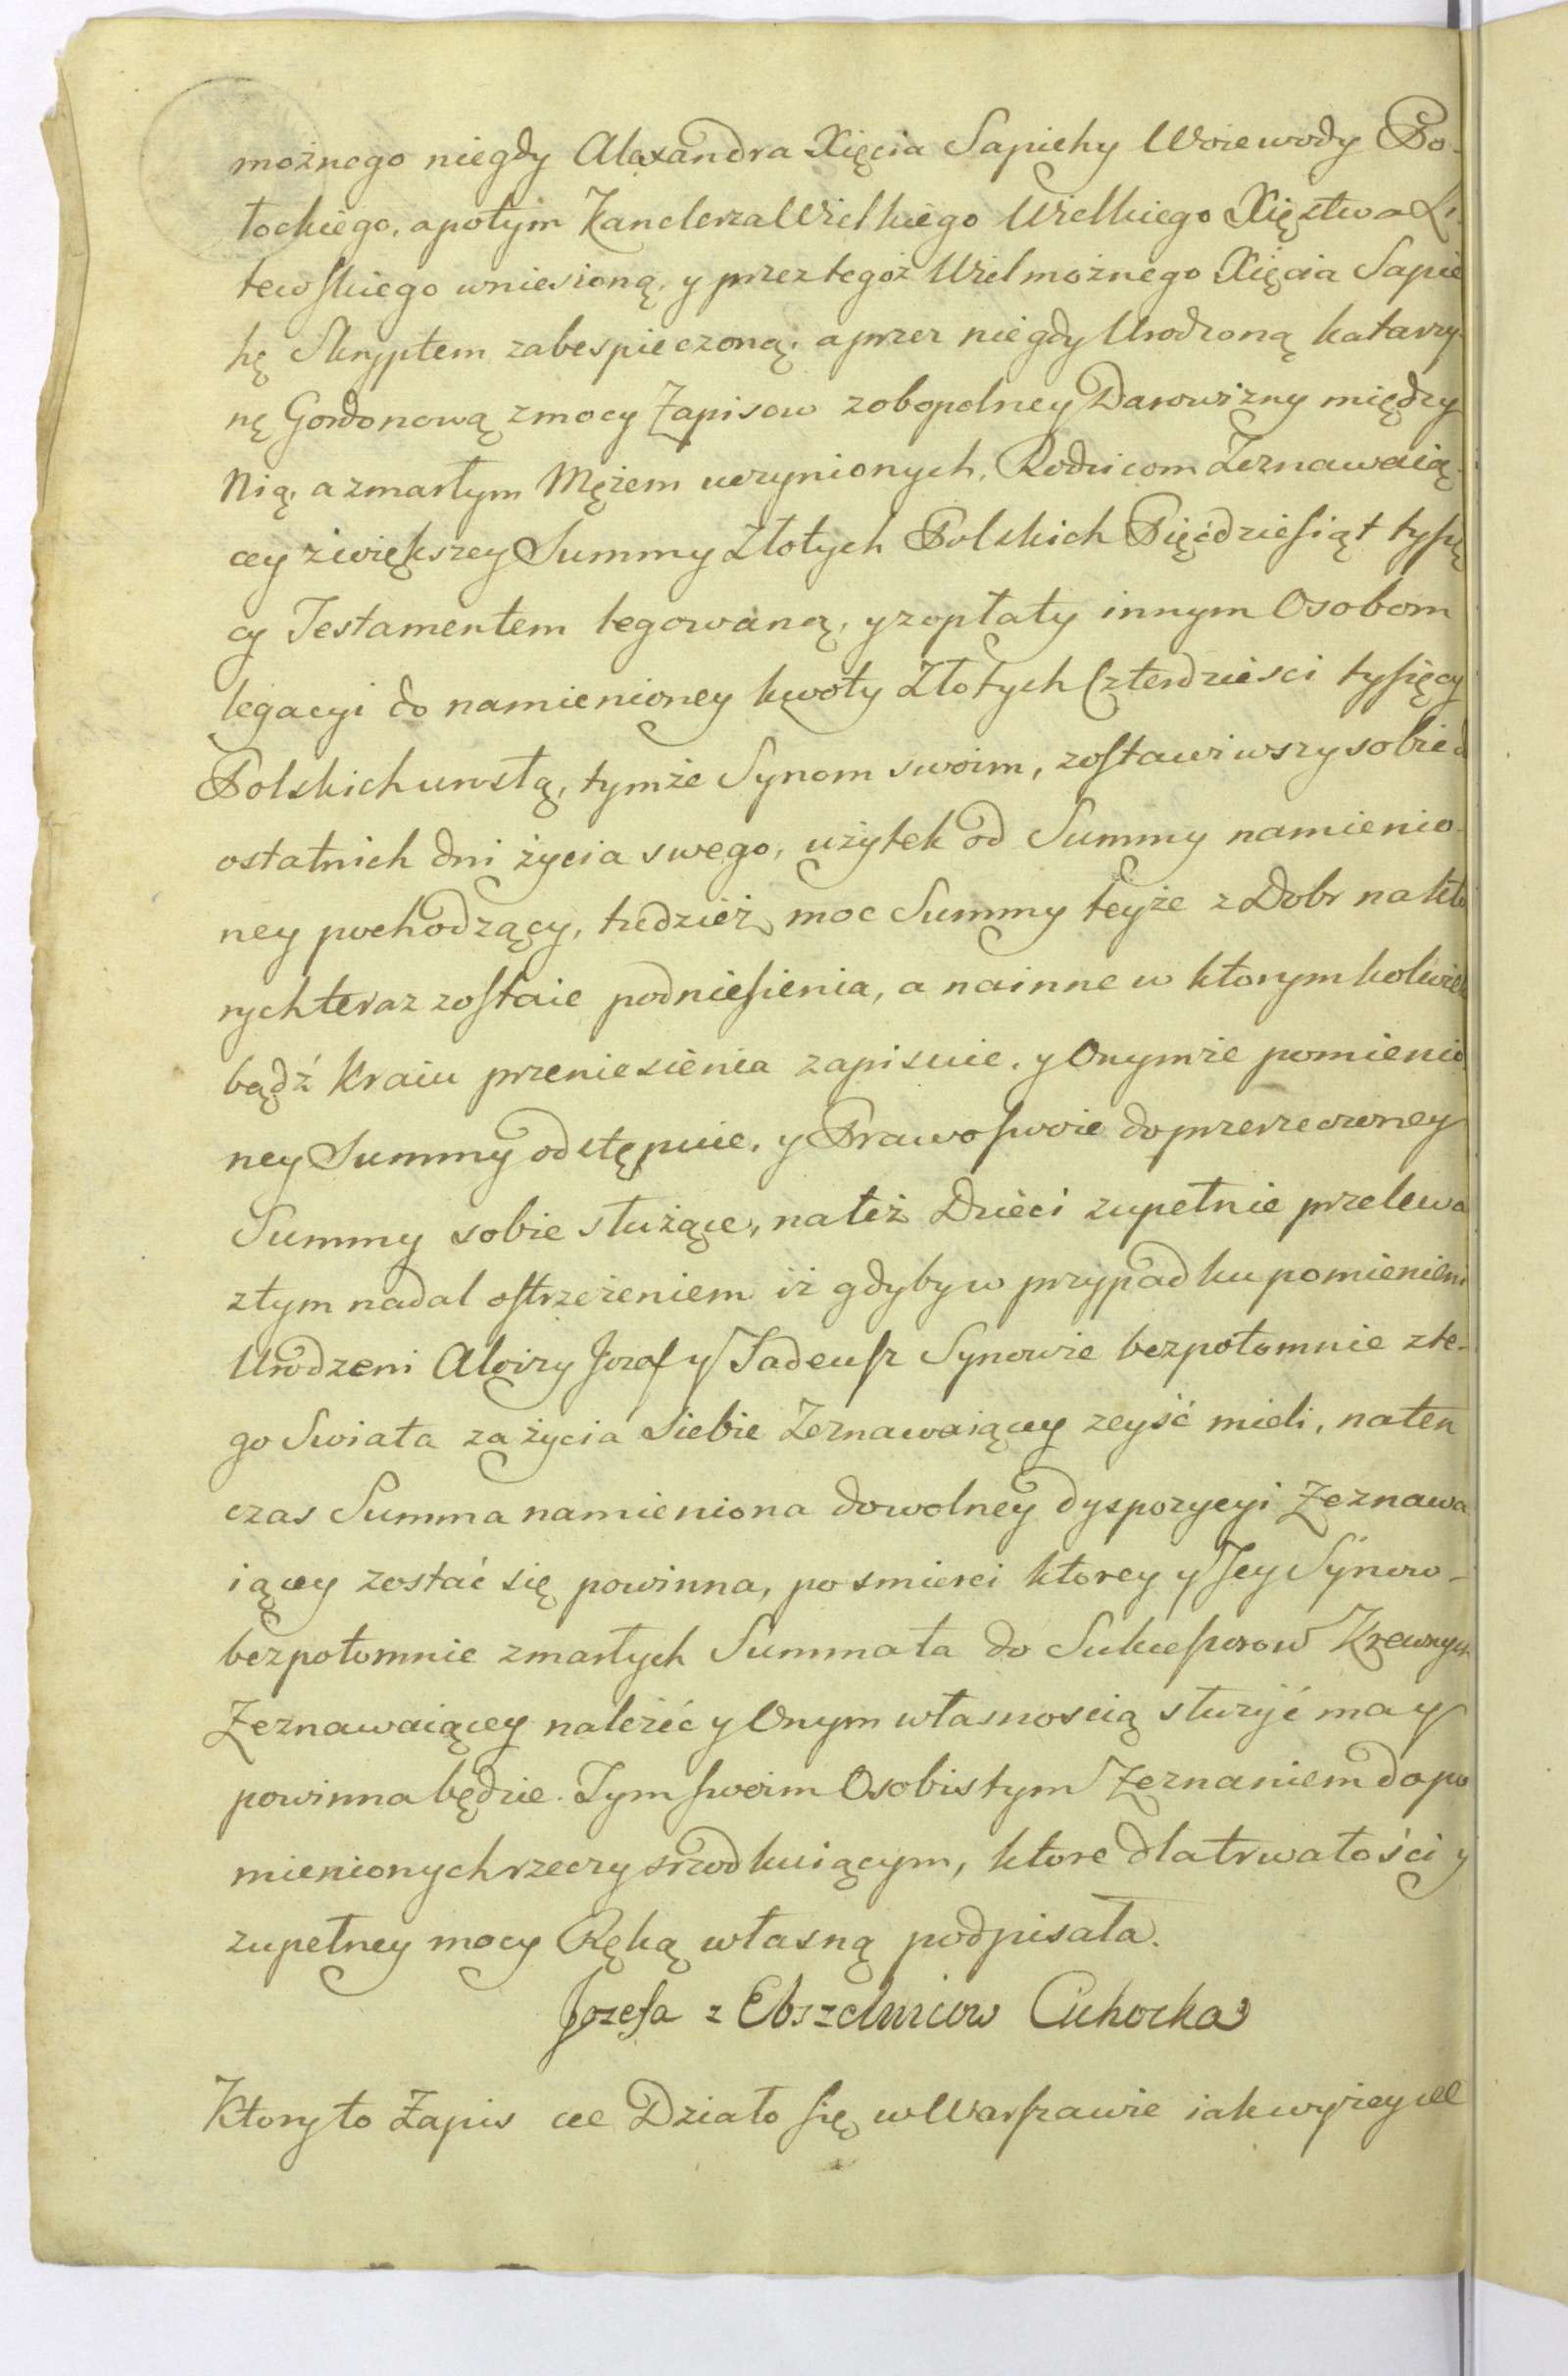 możnego niegdy Alexandra Xięcia Sapiehy Woiewody Po-
łockiego, apotym Kanclerza Wielkiego Wielkiego Xięstwa Li-
tewskiego wniesioną, y przez tegoż Wielmożnego Xięcia Sapie
hę Skryptem zabespieczoną, a przez niegdy Urodzoną Katarzy-
nę Gordonową zmocy Zapisow zobopolney Darowizny między
Nią, a zmarłym Mężem uczynionych, Rodzicom Zeznawaią-
cey zwiększey Summy Złotych Polskich Pięćdziesiąt tysię
cy Testamentem legowaną, y zopłaty innym Osobom
legacyi do namienioney kwoty Złotych Czterdziesci tysięcy
Polskich urosłą, tymże Synom swoim, zostawiwszy sobie d
ostatnich dni życia swego, użytek od Summy namienio-
ney pochodzący, tudzież moc Summy teyże z Dobr na kto
rych teraz zostaie podniesienia, a na inne w ktorymkolwiek
bądź Kraiu przeniesienia zapisuie, y Onymże pomienio
ney Summy odstępuie, y Prawo swoie do przerzeczoney
Summy sobie służące, na też Dzieci zupełnie przelewa
z tym nadal ostrzeżeniem iż gdyby w przypadku pomienieni
Urodzeni Aloizy Jozef y Tadeusz Synowie bezpotomnie z te-
go Swiata za życia Siebie Zeznawaiącey zeyść mieli, naten
czas Summa namieniona dowolney dyspozycyi Zeznawa
iącey zostać się powinna, po smierci ktorey y Jey Synow-
bezpotomnie zmarłych Summa ta do Sukcessorow Krewnych
Zeznawaiącey należeć y Onym własnoscią służyć ma y
powinna będzie. Tym swoim Osobistym Zeznaniem do po
mienionych rzeczy srzodkuiącym, ktore dla trwałości y
zupełney mocy Ręką własną podpisała.
Jozefa z Ebszelwicow Cichocka
Ktory to Zapis ut Działo się w Warszawie iak wyżey ut